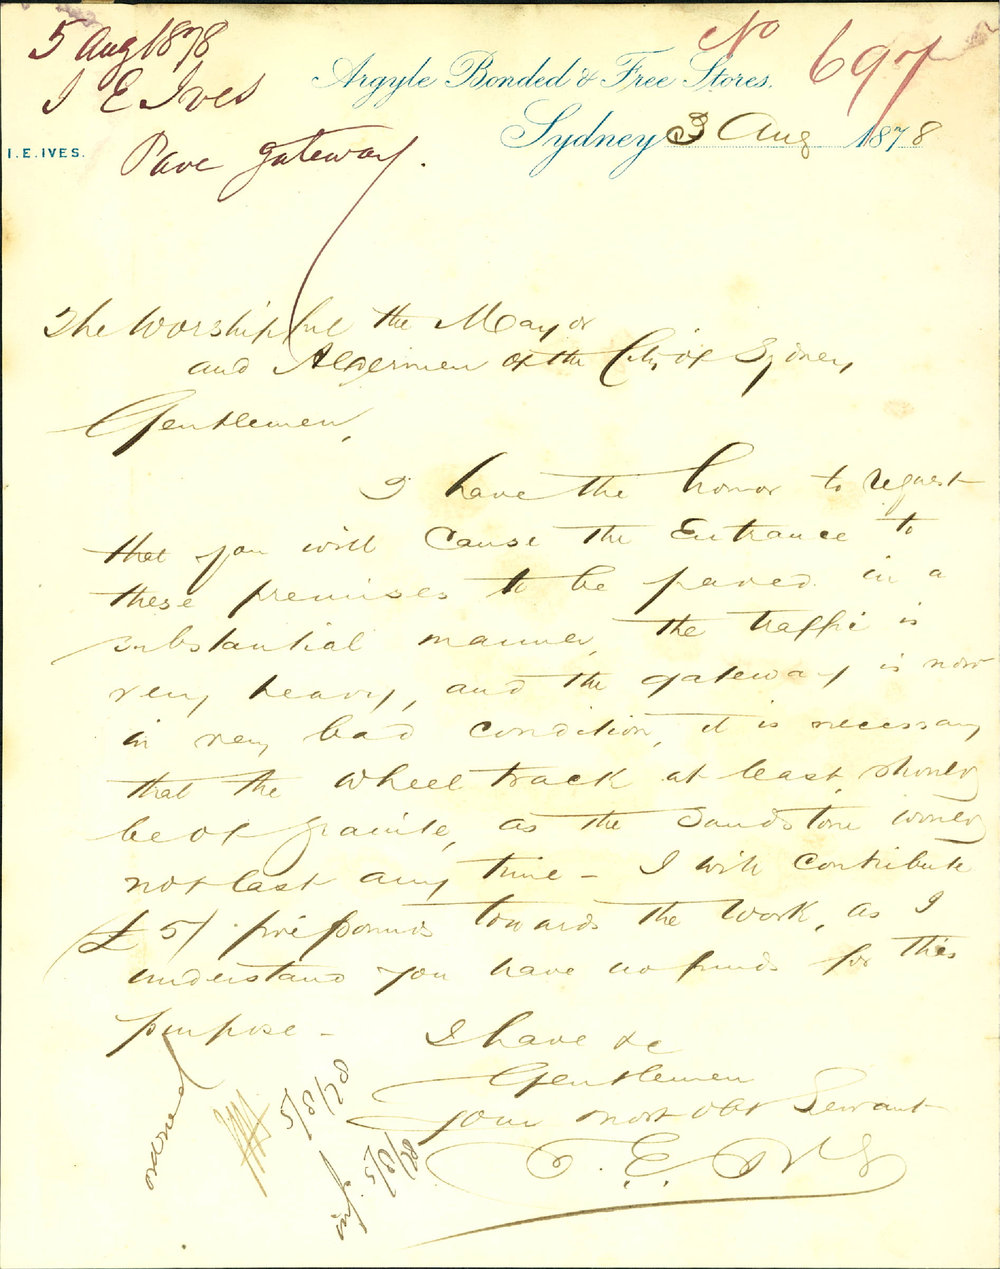 5 Aug 1878
I E Ives
Pave gateway.
No 697
Argyle Bonded & Free Stores.
Sydney 3 Aug 1878
I. E. IVES.
The Worshipful the Mayor
and Aldermen of the City of Sydney,
Gentlemen,
I have the honor to request
that you will cause the Entrance to
these premises to be paved in a
substantial manner, the traffic is
very heavy, and the gateway is now
in very bad condition, it is necessary
that the wheel track at least should
be of granite, as the Sandstone would
not last any time – I will contribute
£5/ five pounds towards the work, as I
understand you have no funds for this
purpose –
I have &c
Gentlemen
Your most obt Servant
I. E. Ives
5/8/78
5/8/78